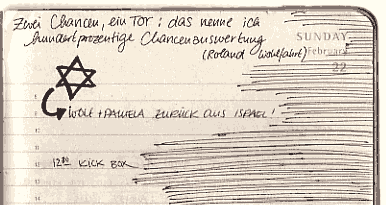 Zwei Chancen, ein Tor: das nenne ich
hundertprozentige Chancenauswertung
(Roland Wohlfahrt)
SUNDAY
February
22
WOLF + PAMELA ZURÜCK AUS ISRAEL!
12:00 KICK BOX